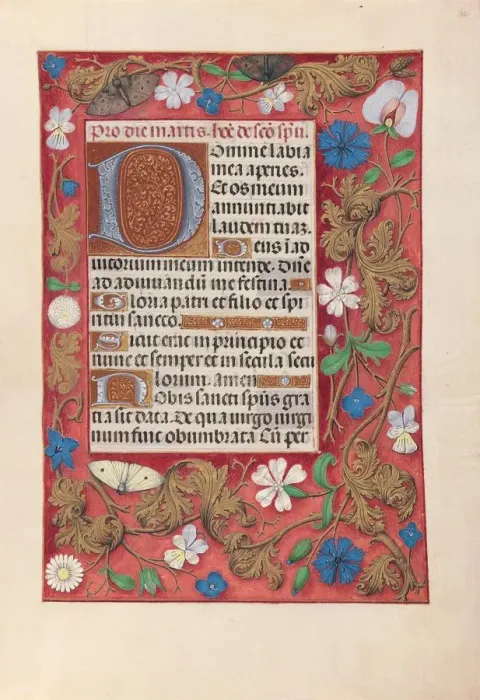 Pro die martis. hec de sc̄o sp̄u.
Domine labia
mea aperies.
Et os meum
annuntiabit
laudem tuaz.
Deus ī ad
iutorium meum intende. dn̄e
ad adiuuandū me festina.
Gloria patri et filio et spi
ritui sancto.
Sicut erat in principio et
nunc et semper et in secula secu
lorum. amen
Nobis sancti sp̄us gra
tia sit data. De qua uirgo uirgi
num fuit obumbrata Cū per